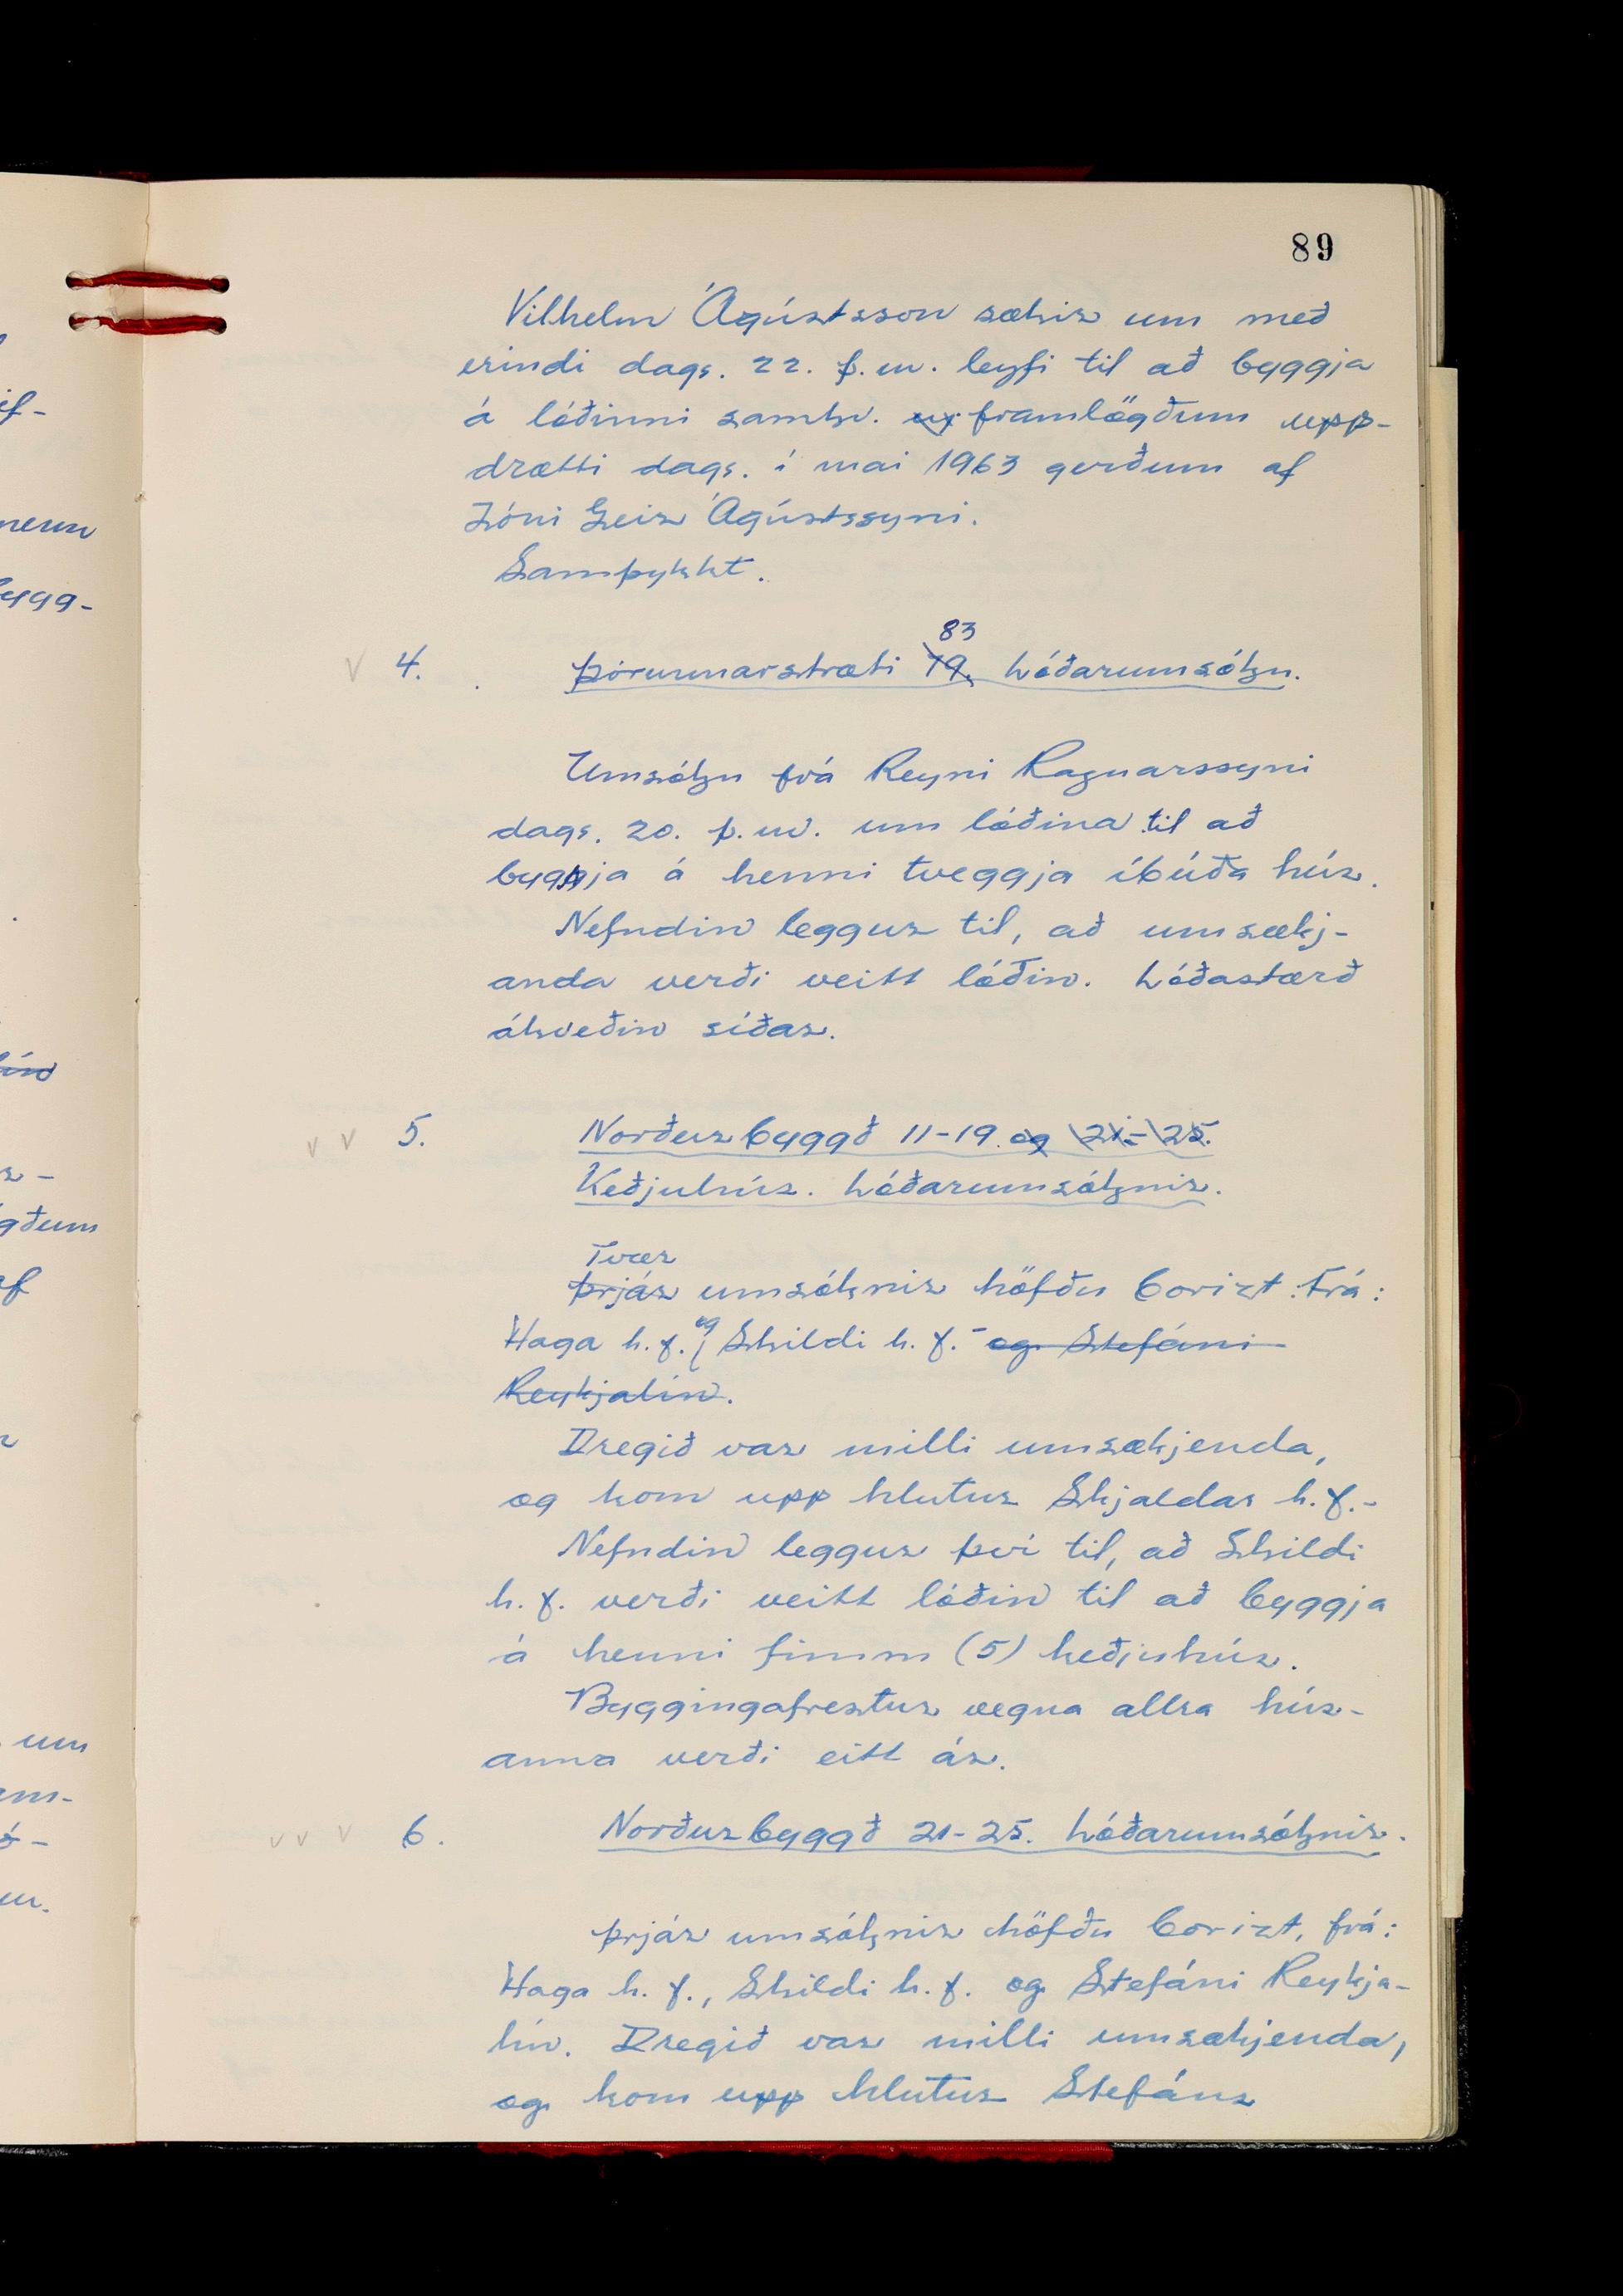 89
Vilhelm Ágústsson sækir um með
erindi dags. 22. þ.m. leyfi til að byggja
á lóðinni samkv. framlögðum upp-
drætti dags. í mai 1963 gerðum af
Jóni Geir Ágústssyni.
Samþykkt.
83
4. Þórunnarstræti 79. Lóðarumsókn.
Umsókn frá Reyni Ragnarssyni
dags. 20. þ.m. um lóðina til að
byggja á henni tveggja íbúða hús.
Nefndin leggur til, að umsækj-
anda verði veitt lóðin. Lóðastærð
ákveðin síðar.
5. Norðurbyggð 11-19. og 21-25.
Keðjuhús. Lóðarumsóknir.
Tvær
Þrjár umsóknir höfðu borizt: Frá:
Haga h.f. og Skildi h.f. - og Stefáni
Reykjalín.
Dregið var milli umsækjenda,
og kom upp hlutur Skjaldar h.f.-
Nefndin leggur því til, að Skildi
h.f. verði veitt lóðin til að byggja
á henni fimm (5) keðjuhús.
Byggingafrestur vegna allra hús-
anna verði eitt ár.
6. Norðurbyggð 21-25. Lóðarumsóknir.
Þrjár umsóknir höfðu borizt, frá:
Haga h.f., Skildi h.f. og Stefáni Reykja-
lín. Dregið var milli umsækjenda,
og kom upp hlutur Stefáns